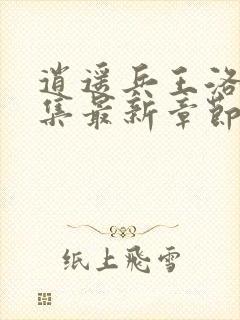 逍遥兵王洛
集最新章節
纸上飛雪